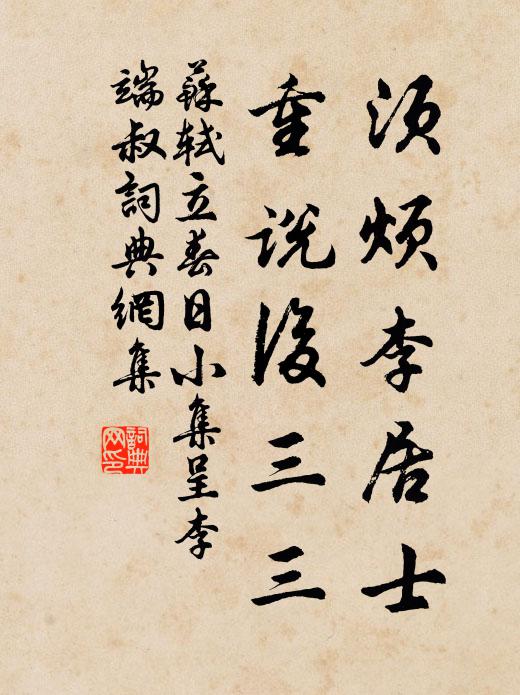 須煩李居士
重説後三三
蘇軾立春日小集呈李
端叔詞典網集
詞典
网印